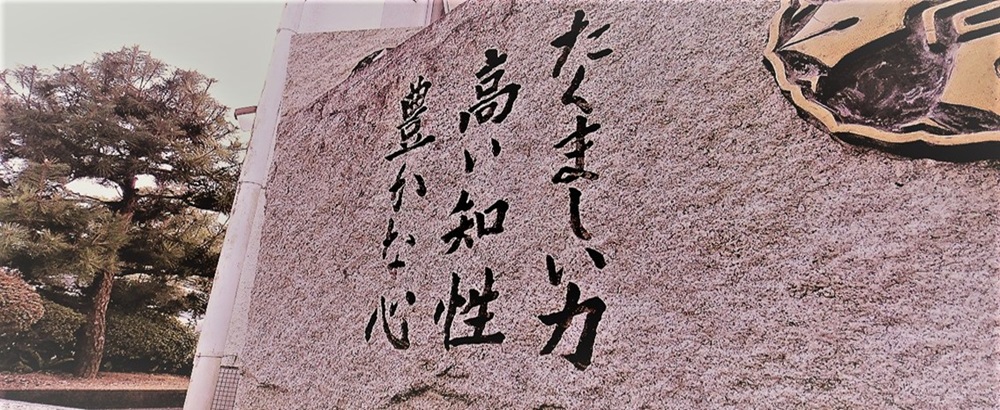 たくましい力
高い知性
豊かな心